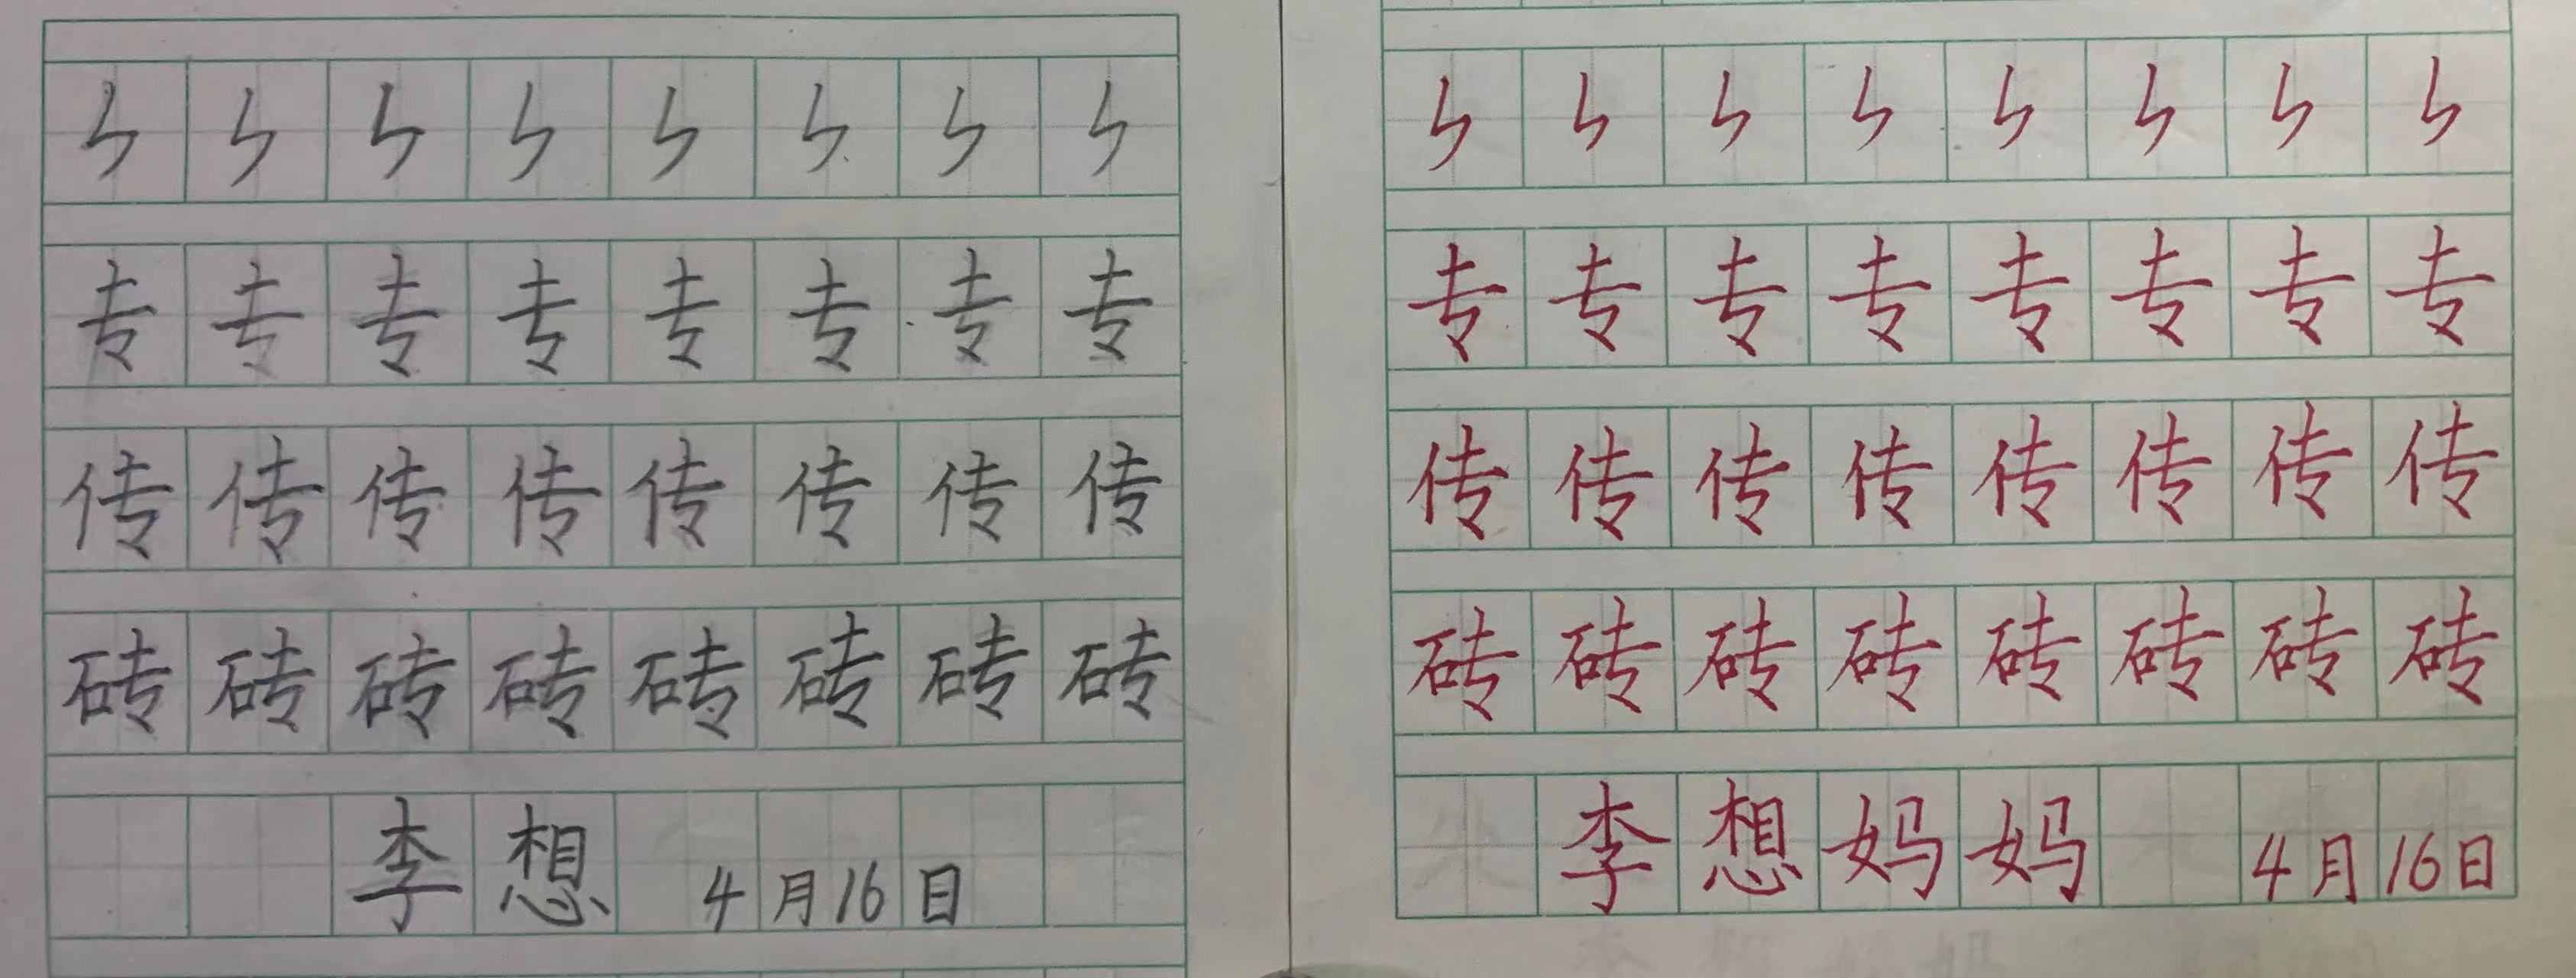 ㄣ ㄣ ㄣ ㄣ ㄣ ㄣ ㄣ ㄣ
专 专 专 专 专 专 专 专
传 传 传 传 传 传 传 传
砖 砖 砖 砖 砖 砖 砖 砖
李 想 4月16日
ㄣ ㄣ ㄣ ㄣ ㄣ ㄣ ㄣ ㄣ
专 专 专 专 专 专 专 专
传 传 传 传 传 传 传 传
砖 砖 砖 砖 砖 砖 砖 砖
李 想 妈 妈 4月16日